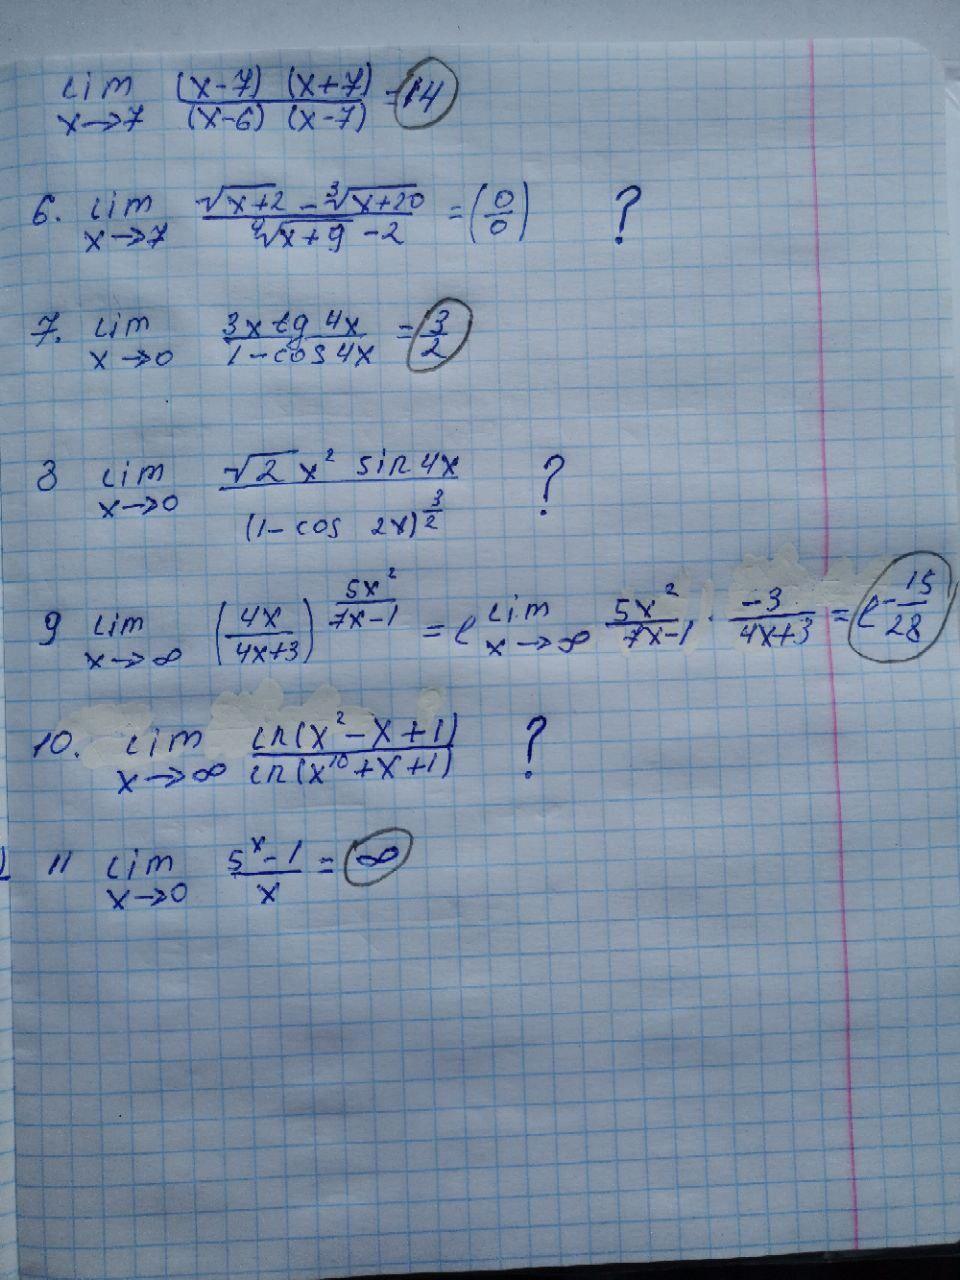 lim x→7 (x-7) (x+7) / (x-6) (x-7) = 14
6. lim x→7 (√x+2 - ³√x+20) / (⁴√x+9 - 2) = (0/0) ?
7. lim x→0 3x tg 4x / 1-cos 4x = 3/2
8 lim x→0 √2 x² sin 4x / (1-cos 2x)^(3/2) ?
9 lim x→∞ (4x / 4x+3)^(5x² / 7x-1) = e^lim x→∞ 5x² / 7x-1 · -3 / 4x+3 = e^(-15/28)
10. lim x→∞ ln(x²-x+1) / ln(x¹⁰+x+1) ?
11 lim x→0 5ˣ-1 / x = ∞